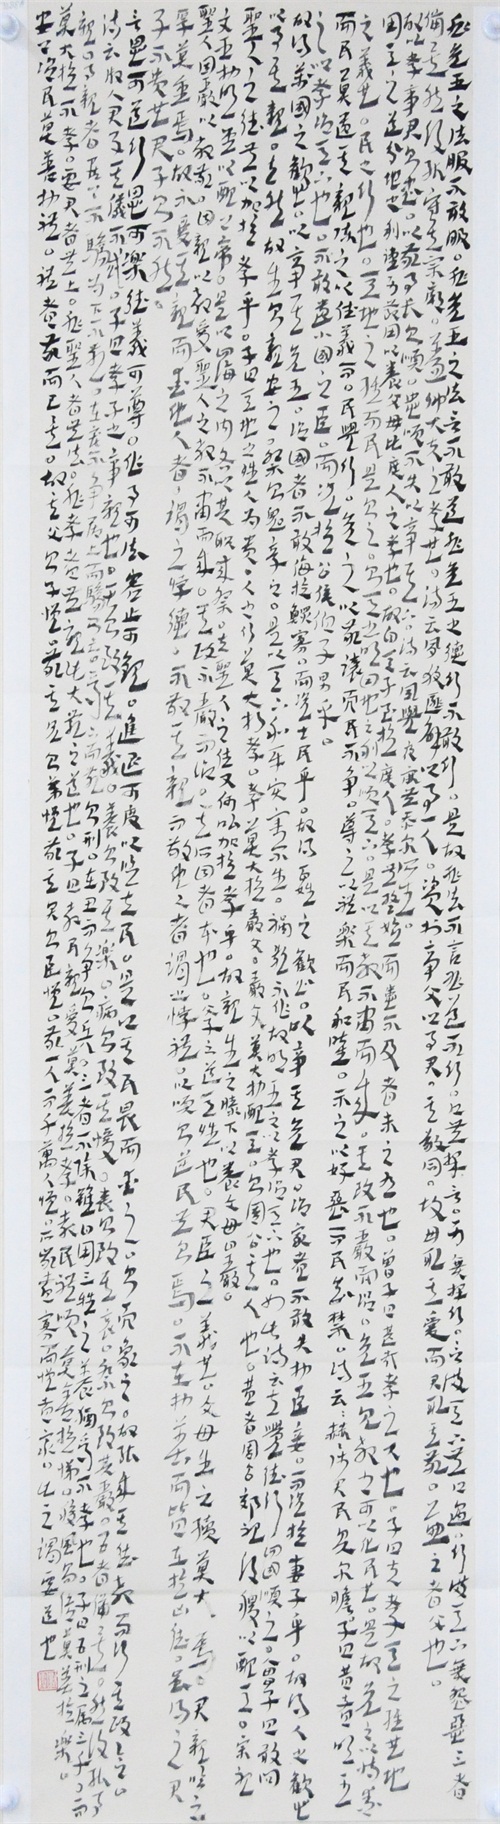 非先王之法服不敢服。非先王之法言不敢道。非先王之德行不敢行。是故非法不言。非道不行。口無擇言。身無擇行。言滿天下無口過。行滿天下無怨惡。三者
備矣。然後能守其宗廟。蓋卿大夫之孝也。詩云。夙夜匪懈。以事一人。資於事父以事君。其敬同。故母取其愛。而君取其敬。兼之者父也。
故以孝事君則忠。以敬事長則順。忠順不失。以事其上。詩云。夙興夜寐。無忝爾所生。
因天之道。分地之利。謹身節用。以養父母。此庶人之孝也。故自天子至於庶人。孝無終始。而患不及者。未之有也。曾子曰。甚哉孝之大也。子曰。夫孝。天之經也。地
之義也。民之行也。天地之經。而民是則之。則天之明。因地之利。以順天下。是以其教不肅而成。其政不嚴而治。先王見教之可以化民也。是故先之以博愛
而民莫遺其親。陳之以德義。而民興行。先之以敬讓。而民不爭。導之以禮樂。而民和睦。示之以好惡。而民知禁。詩云。赫赫師尹。民具爾瞻。子曰。昔者明王
之以孝治天下也。不敢遺小國之臣。而況於公侯伯子男乎。
故得萬國之歡心。以事其先王。治國者不敢侮於鰥寡。而況於士民乎。故得百姓之歡心。以事其先君。治家者不敢失於臣妾。而況於妻子乎。故得人之歡心
以事其親。夫然。故生則親安之。祭則鬼享之。是以天下和平。災害不生。禍亂不作。故明王之以孝治天下也如此。詩云。有覺德行。四國順之。曾子曰。敢問
聖人之德。無以加於孝乎。子曰。天地之性人為貴。人之行莫大於孝。孝莫大於嚴父。嚴父莫大於配天。則周公其人也。昔者周公郊祀后稷以配天。宗祀
文王於明堂以配上帝。是以四海之內各以其職來祭。夫聖人之德又何以加於孝乎。故親生之膝下以養父母日嚴。
聖人因嚴以教敬。因親以教愛。聖人之教不肅而成。其政不嚴而治。其所因者本也。父子之道天性也。君臣之義也。父母生之續莫大焉。君親臨之
厚莫重焉。故不愛其親而愛他人者。謂之悖德。不敬其親而敬他人者。謂之悖禮。以順則逆。民無則焉。不在於善而皆在於凶德。雖得之君
子不貴也。君子則不然。
言思可道。行思可樂。德義可尊。作事可法。容止可觀。進退可度。以臨其民。是以其民畏而愛之。則而象之。故能成其德教而行其政令。
詩云。淑人君子。其儀不忒。子曰。孝子之事親也。居則致其敬。養則致其樂。病則致其憂。喪則致其哀。祭則致其嚴。五者備矣。然後能事
親。事親者居上不驕。為下不亂。在醜不爭。居上而驕則亡。為下而亂則刑。在醜而爭則兵。三者不除。雖日用三牲之養。猶為不孝也。子曰。五刑之屬三千。而罪
莫大於不孝。要君者無上。非聖人者無法。非孝者無親。此大亂之道也。子曰。教民親愛莫善於孝。教民禮順莫善於悌。移風易俗莫善於樂。
安上治民莫善於禮。禮者敬而已矣。故敬其父則子悅。敬其兄則弟悅。敬其君則臣悅。敬一人而千萬人悅。所敬者寡而悅者眾。此之謂要道也